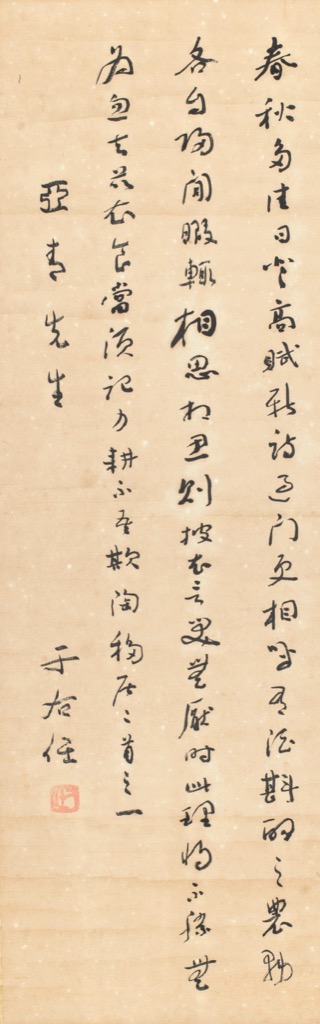 春秋多佳日登高賦新詩過门更相呼有酒斟酌之農務
各自歸閒暇輒相思相思則披衣言笑無厭时此理將不勝無
為忽去茲衣食當須記力耕不吾欺陶移居二首之一
亞青先生
于右任